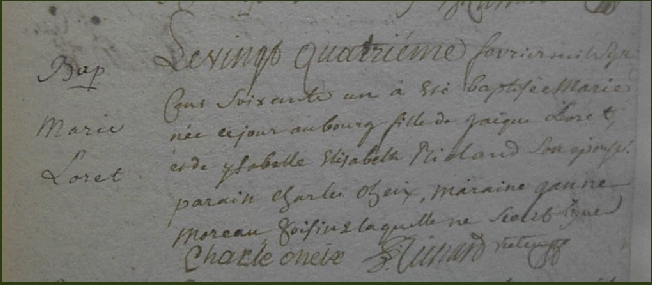 Bap
Marie
Loret
Le vingt quatriéme fevrier mil sept
Cens Soixante un à été baptisée Marie
née ce jour au bourg fille de Jaque Loret
et de ysabelle Elisabeth son epouse
parain Charles Oheix, maraine Janne
Moreau laquelle ne Scait Signer
Charle oheix